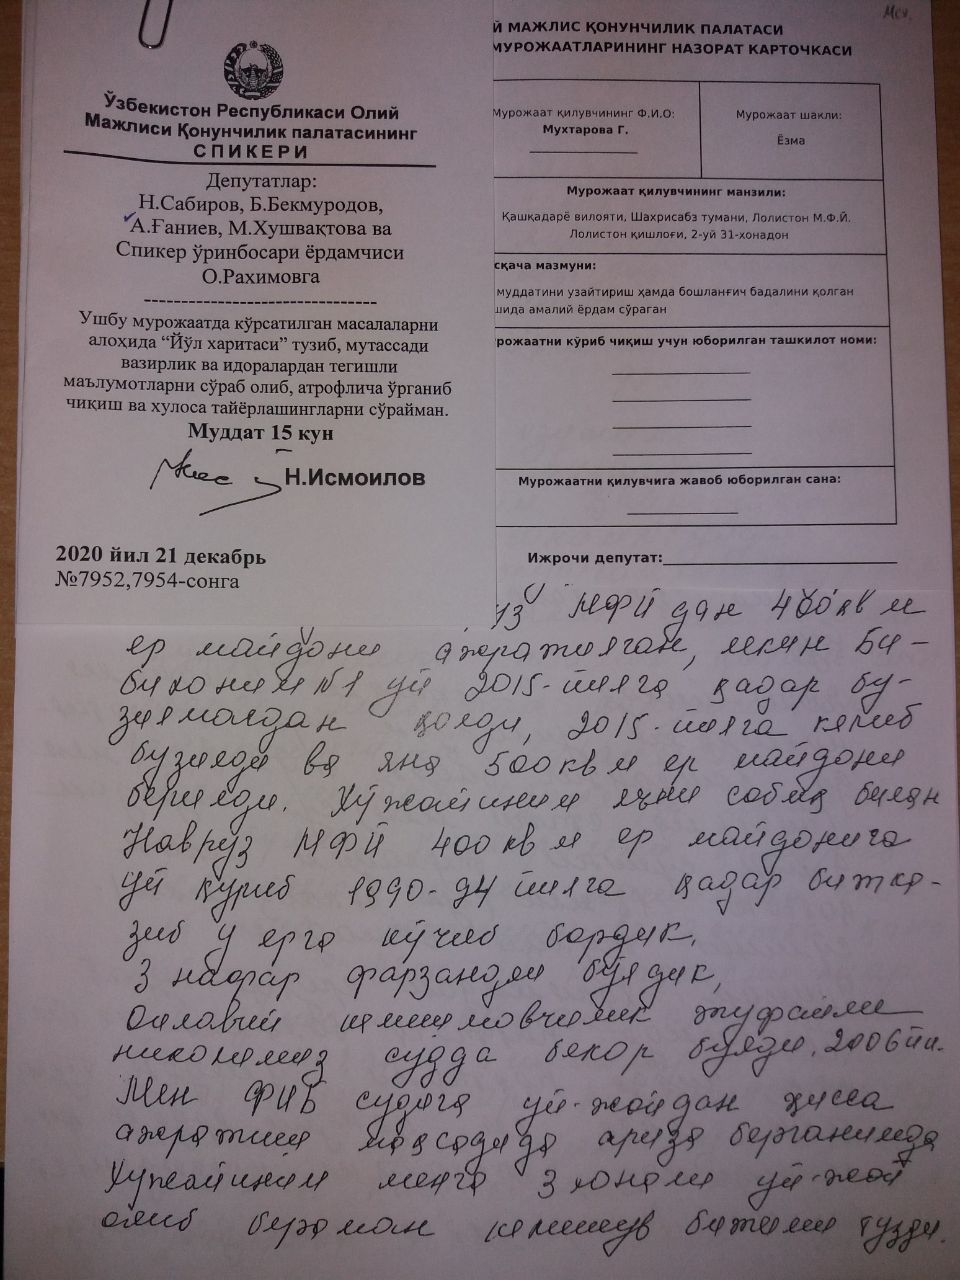 Ўзбекистон Республикаси Олий
Мажлиси Қонунчилик палатасининг
СПИКЕРИ
Депутатлар:
Н.Сабиров, Б.Бекмуродов,
А.Ғаниев, М.Хушвақтова ва
Спикер ўринбосари ёрдамчиси
О.Рахимовга
Ушбу мурожаатда кўрсатилган масалаларни
алоҳида “Йўл харитаси” тузиб, мутассади
вазирлик ва идоралардан тегишли
маълумотларни сўраб олиб, атрофлича ўрганиб
чиқиш ва хулоса тайёрлашингларни сўрайман.
Муддат 15 кун
Н.Исмоилов
2020 йил 21 декабрь
№7952,7954-сонга
Й МАЖЛИС ҚОНУНЧИЛИК ПАЛАТАСИ
МУРОЖААТЛАРИНИНГ НАЗОРАТ КАРТОЧКАСИ
Мурожаат қилувчининг Ф.И.О:
Мухтарова Г.
Мурожаат шакли:
Ёзма
Мурожаат қилувчининг манзили:
Қашқадарё вилояти, Шахрисабз тумани, Лолистон М.Ф.Й.
Лолистон қишлоғи, 2-уй 31-хонадон
сқача мазмуни:
муддатини узайтириш ҳамда бошланғич бадалини қолган
шида амалий ёрдам сўраган
рожаатни кўриб чиқиш учун юборилган ташкилот номи:
Мурожаатни қилувчига жавоб юборилган сана:
Ижрочи депутат:
уз МФЙ дан 400 кв м
ер майдони ажратилган, лекин Би-
бихоним №1 уй 2015-йилга қадар бу-
зилмасдан қолди, 2015-йилга келиб
бузилди ва яна 500 кв м ер майдони
берилди. Хўжайиним яъни собиқ билан
Навруз МФЙ 400 кв м ер майдонига
уй қуриб 1990-94 йилга қадар битка-
зиб у ерга кўчиб бордик.
3 нафар фарзандли бўлдик,
Оилавий келишмовчилик туфайли
никохимиз судда бекор бўлди. 2006 йил.
Мен ФИБ судига уй-жойдан ҳисса
ажратиш мақсадида ариза берганимда
Хужайиним менга 3 хонали уй-жой
олиб бераман келишув битими тузди.